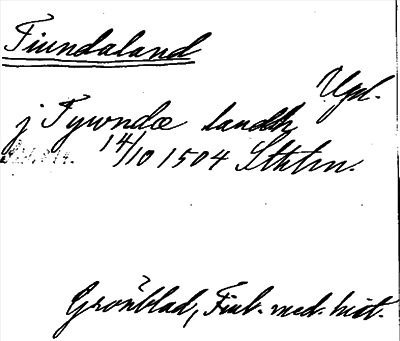 Tiundaland
Upl.
j Tywndæ landh
14/10 1504 Sthlm.
Grönblad, Finl. med. hist.